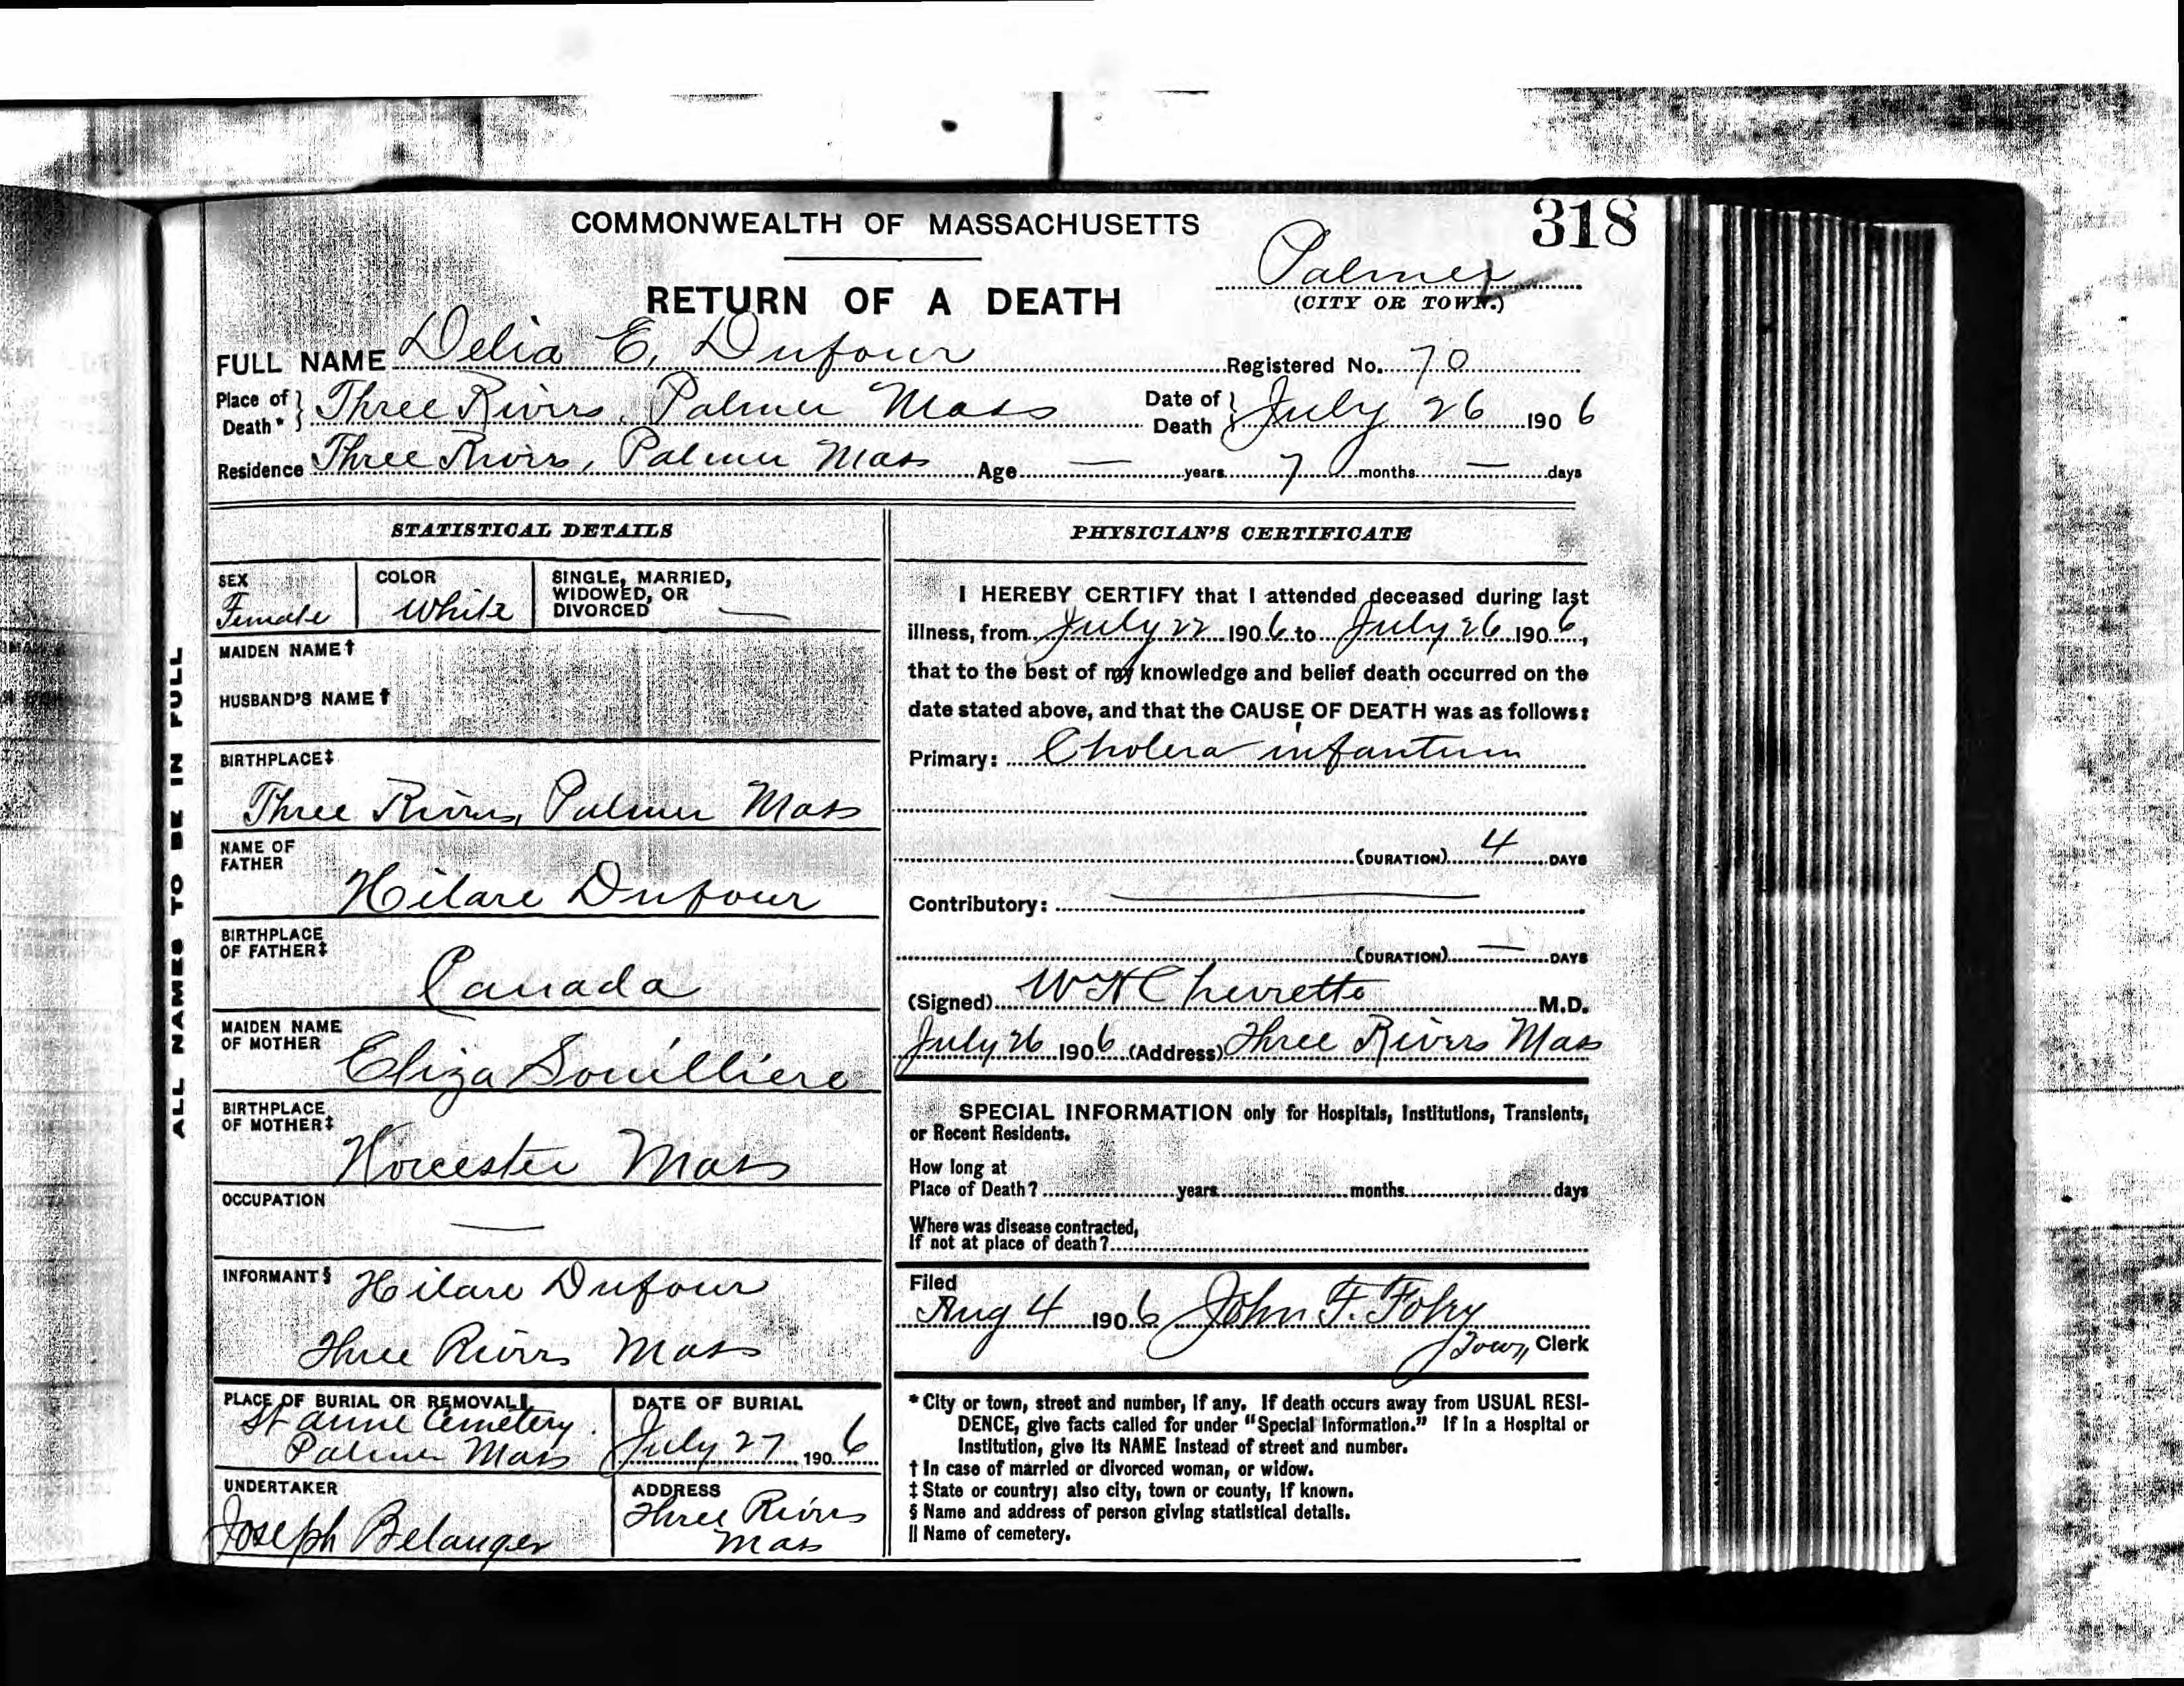 318
COMMONWEALTH OF MASSACHUSETTS
Palmer
(CITY OR TOWN.)
RETURN OF A DEATH
FULL NAME Delia E. Dufour Registered No. 70
Place of Death* } Three Rivers, Palmer Mass Date of Death } July 26 1906
Residence Three Rivers, Palmer Mass Age — years 7 months — days
ALL NAMES TO BE IN FULL
STATISTICAL DETAILS
SEX Female
COLOR White
SINGLE, MARRIED, WIDOWED, OR DIVORCED —
MAIDEN NAME†
HUSBAND'S NAME†
BIRTHPLACE‡
Three Rivers, Palmer Mass
NAME OF FATHER
Hilare Dufour
BIRTHPLACE OF FATHER‡
Canada
MAIDEN NAME OF MOTHER
Eliza Souilliere
BIRTHPLACE OF MOTHER‡
Worcester Mass
OCCUPATION
—
INFORMANT§ Hilare Dufour
Three Rivers Mass
PLACE OF BURIAL OR REMOVAL||
St anne Cemetery.
Palmer Mass
DATE OF BURIAL
July 27 1906
UNDERTAKER
Joseph Belanger
ADDRESS
Three Rivers
Mass
PHYSICIAN'S CERTIFICATE
I HEREBY CERTIFY that I attended deceased during last
illness, from July 22 1906 to July 26 1906,
that to the best of my knowledge and belief death occurred on the
date stated above, and that the CAUSE OF DEATH was as follows:
Primary: Cholera infantum
(DURATION) 4 DAYS
Contributory: —
(DURATION) — DAYS
(Signed) W H Chevrette M.D.
July 26 1906 (Address) Three Rivers Mass
SPECIAL INFORMATION only for Hospitals, Institutions, Transients,
or Recent Residents.
How long at
Place of Death? years months days
Where was disease contracted,
If not at place of death?
Filed
Aug 4 1906 John F. Foley
Town Clerk
* City or town, street and number, if any. If death occurs away from USUAL RESI-
DENCE, give facts called for under "Special Information." If in a Hospital or
Institution, give its NAME instead of street and number.
† In case of married or divorced woman, or widow.
‡ State or country; also city, town or county, if known.
§ Name and address of person giving statistical details.
|| Name of cemetery.